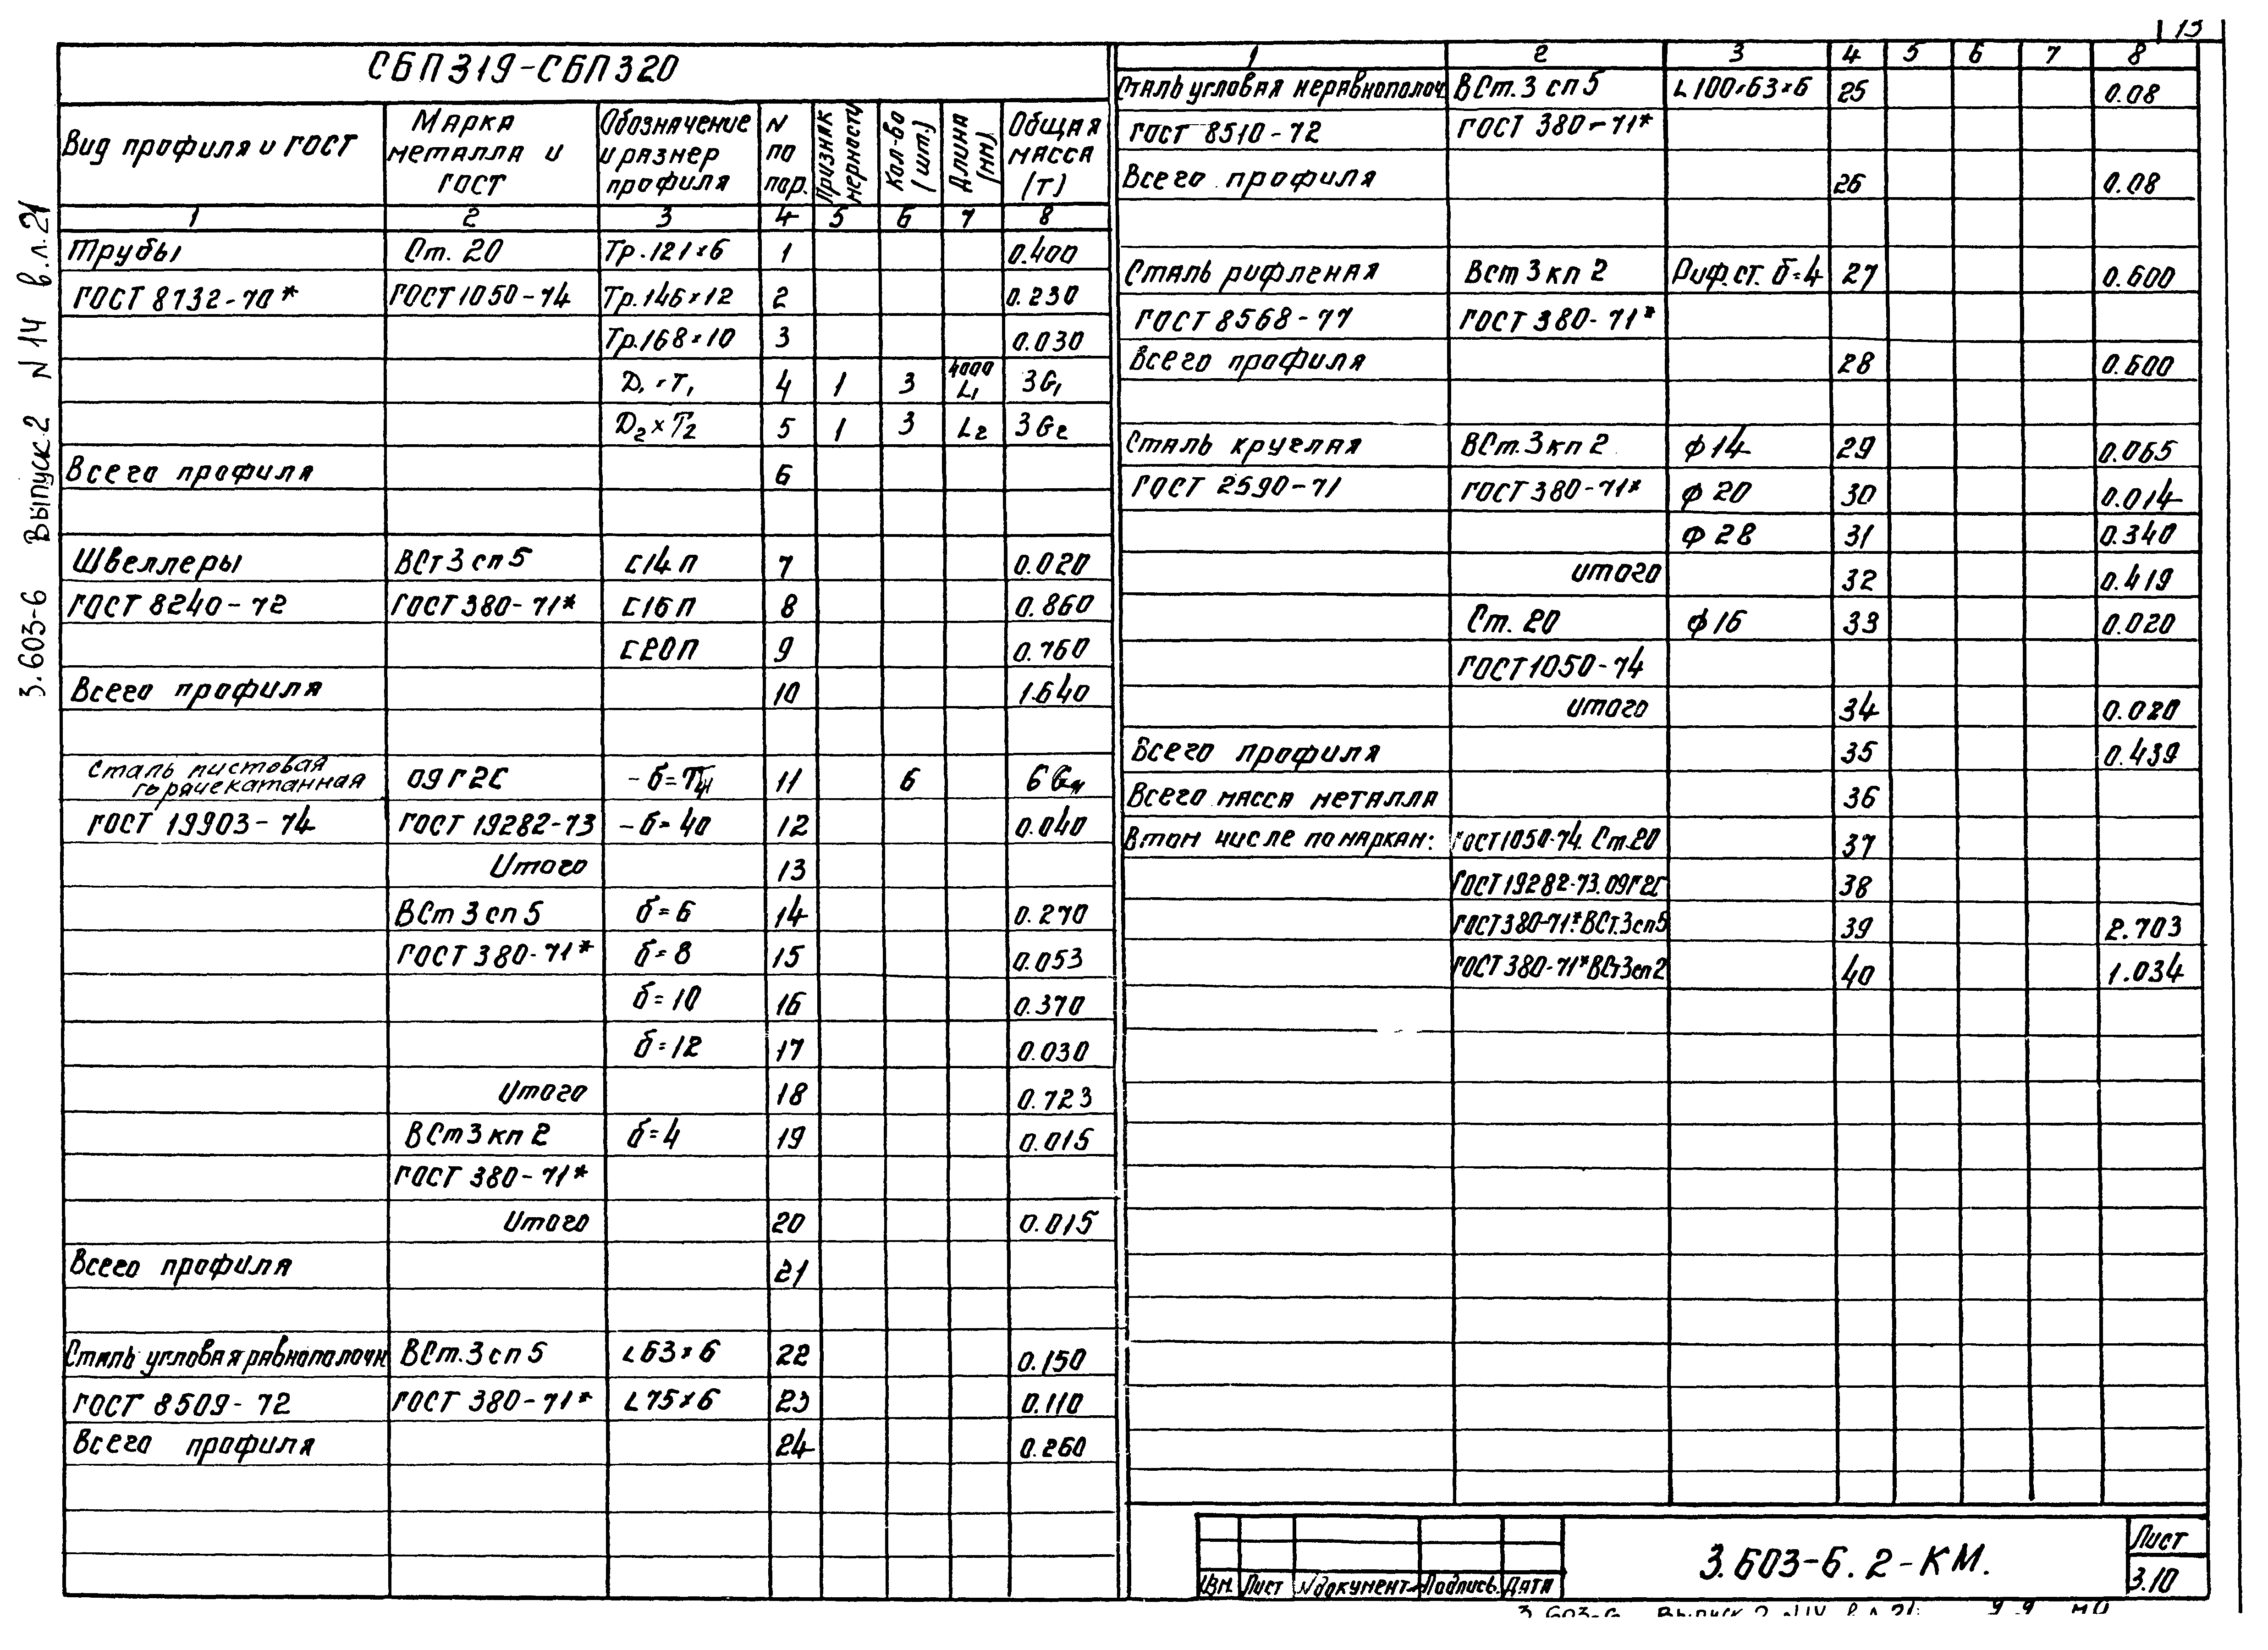 13
3.603-6 Выпуск 2 N 14 в.л.21
СБП319-СБП320
Вид профиля и ГОСТ | Марка металла и ГОСТ | Обозначение и размер профиля | N по пор. | Признак мерности | Кол-во (шт.) | Длина (мм) | Общая масса (т)
1 2 3 4 5 6 7 8
Трубы Ст. 20 Тр.121×6 1 0.400
ГОСТ 8732-70* ГОСТ 1050-74 Тр.146×12 2 0.230
Тр.168×10 3 0.030
D₁×T₁ 4 1 3 4000 L₁ 3G₁
D₂×T₂ 5 1 3 L₂ 3G₂
Всего профиля 6
Швеллеры ВСт3сп5 С14П 7 0.020
ГОСТ 8240-72 ГОСТ 380-71* С16П 8 0.860
С20П 9 0.760
Всего профиля 10 1.640
Сталь листовая горячекатанная 09Г2С -δ=Tн 11 6 6Gн
ГОСТ 19903-74 ГОСТ 19282-73 -δ=40 12 0.040
Итого 13
ВСт3сп5 δ=6 14 0.270
ГОСТ 380-71* δ=8 15 0.053
δ=10 16 0.370
δ=12 17 0.030
Итого 18 0.723
ВСт3кп2 δ=4 19 0.015
ГОСТ 380-71*
Итого 20 0.015
Всего профиля 21
Сталь угловая равнополочн ВСт.3сп5 L63×6 22 0.150
ГОСТ 8509-72 ГОСТ 380-71* L75×6 23 0.110
Всего профиля 24 0.260
1 2 3 4 5 6 7 8
Сталь угловая неравнополоч. ВСт.3сп5 L100×63×6 25 0.08
ГОСТ 8510-72 ГОСТ 380-71*
Всего профиля 26 0.08
Сталь рифленая ВСт3кп2 Риф.ст. δ=4 27 0.600
ГОСТ 8568-77 ГОСТ 380-71*
Всего профиля 28 0.600
Сталь круглая ВСт.3кп2 ф14 29 0.065
ГОСТ 2590-71 ГОСТ 380-71* ф20 30 0.014
ф28 31 0.340
итого 32 0.419
Ст. 20 ф16 33 0.020
ГОСТ 1050-74
итого 34 0.020
Всего профиля 35 0.439
Всего масса металла 36
В том числе по маркам: ГОСТ1050-74. Ст.20 37
ГОСТ 19282-73. 09Г2С 38
ГОСТ380-71*. ВСт.3сп5 39 2.703
ГОСТ 380-71* ВСт3сп2 40 1.034
Изм. Лист N документ. Подпись. Дата
3.603-6.2-КМ.
Лист
3.10